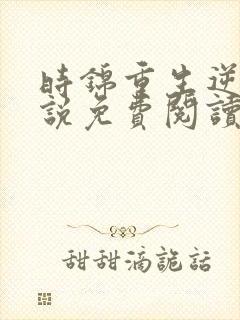 時錦重生逆
說免費閱讀
甜甜滴詭話